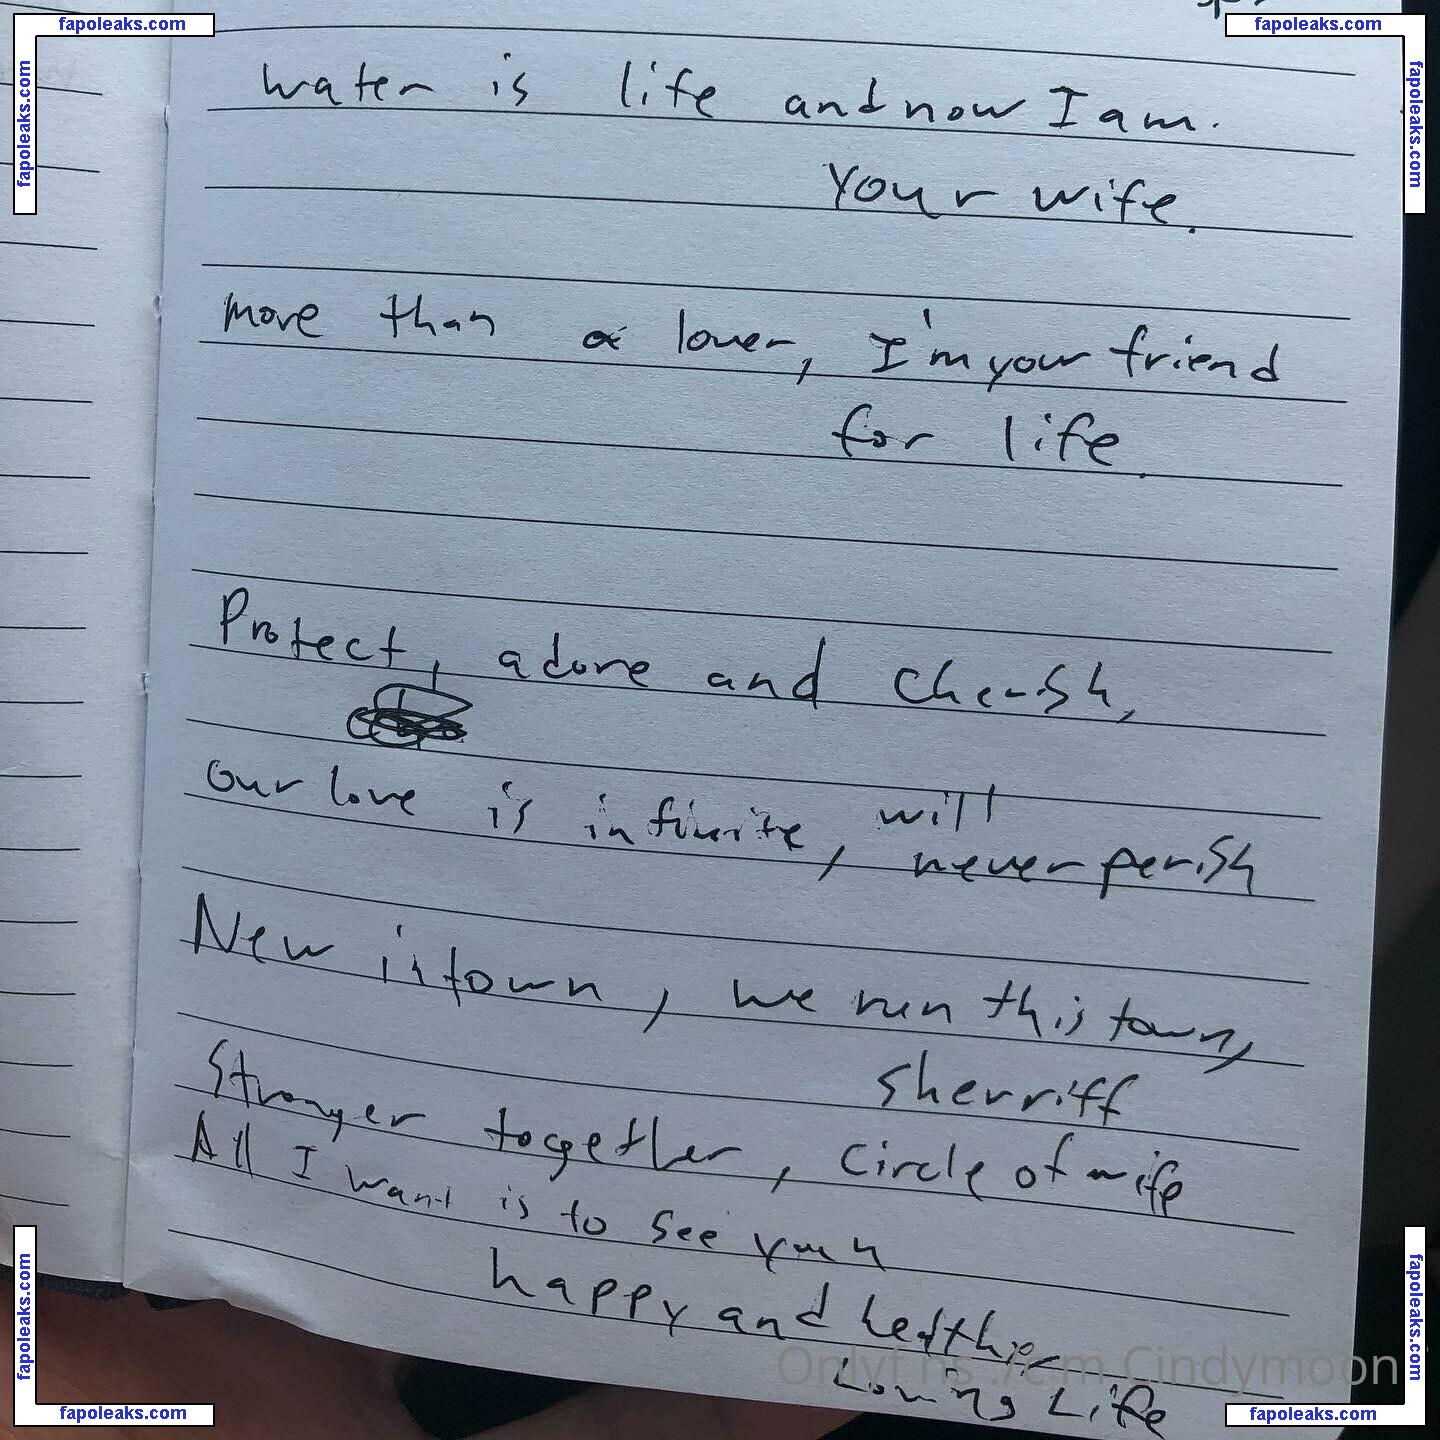 fapoleaks.com
fapoleaks.com
fapoleaks.com
fapoleaks.com
water is life and now I am.
your wife.
more than a lover, I'm your friend
for life.
Protect, adore and cherish,
our love is infinite, will
never perish
New in town, we run this town,
Sherriff
Stronger together, circle of wife
All I want is to see you
happy and
Loving Life
Cindymoon
fapoleaks.com
fapoleaks.com
fapoleaks.com
fapoleaks.com